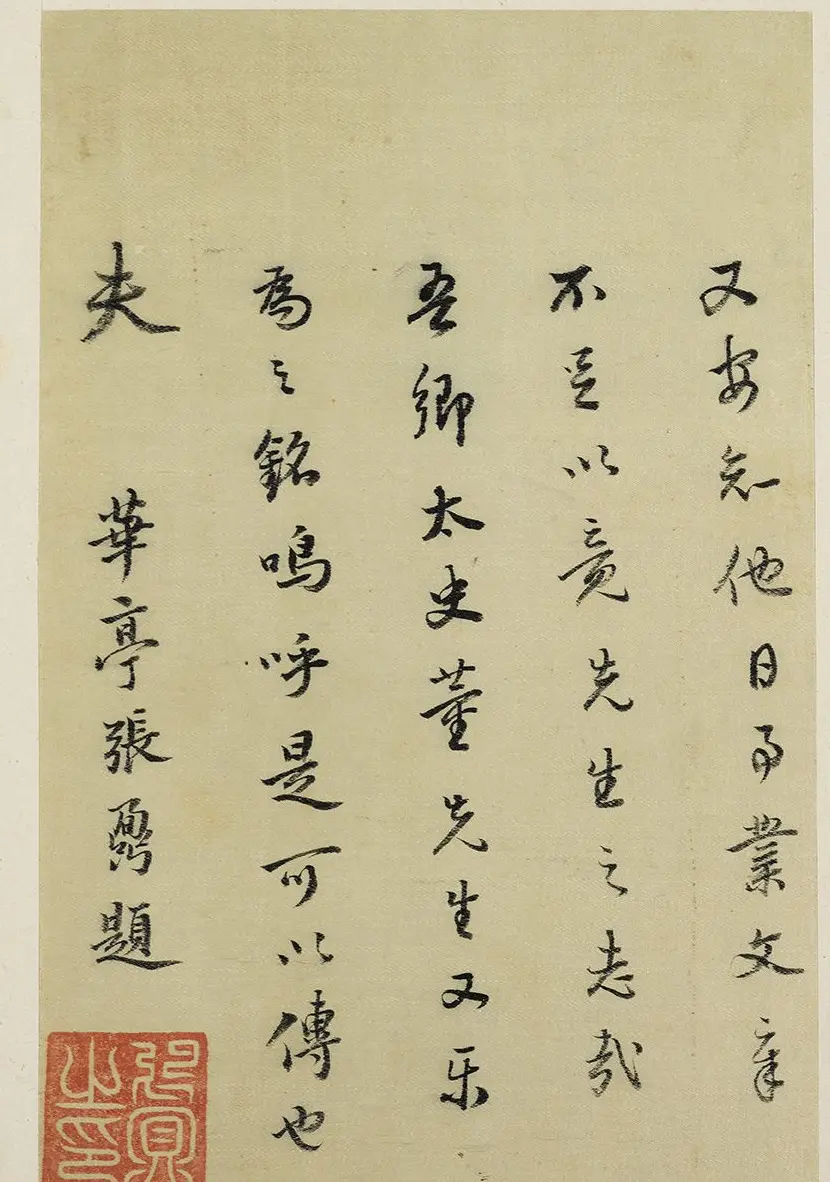 又安知他日事業文章
不足以竟先生之志哉
吾鄉太史董先生又樂
為之銘嗚呼是可以傳也
夫 華亭張鼐題
張鼐之印